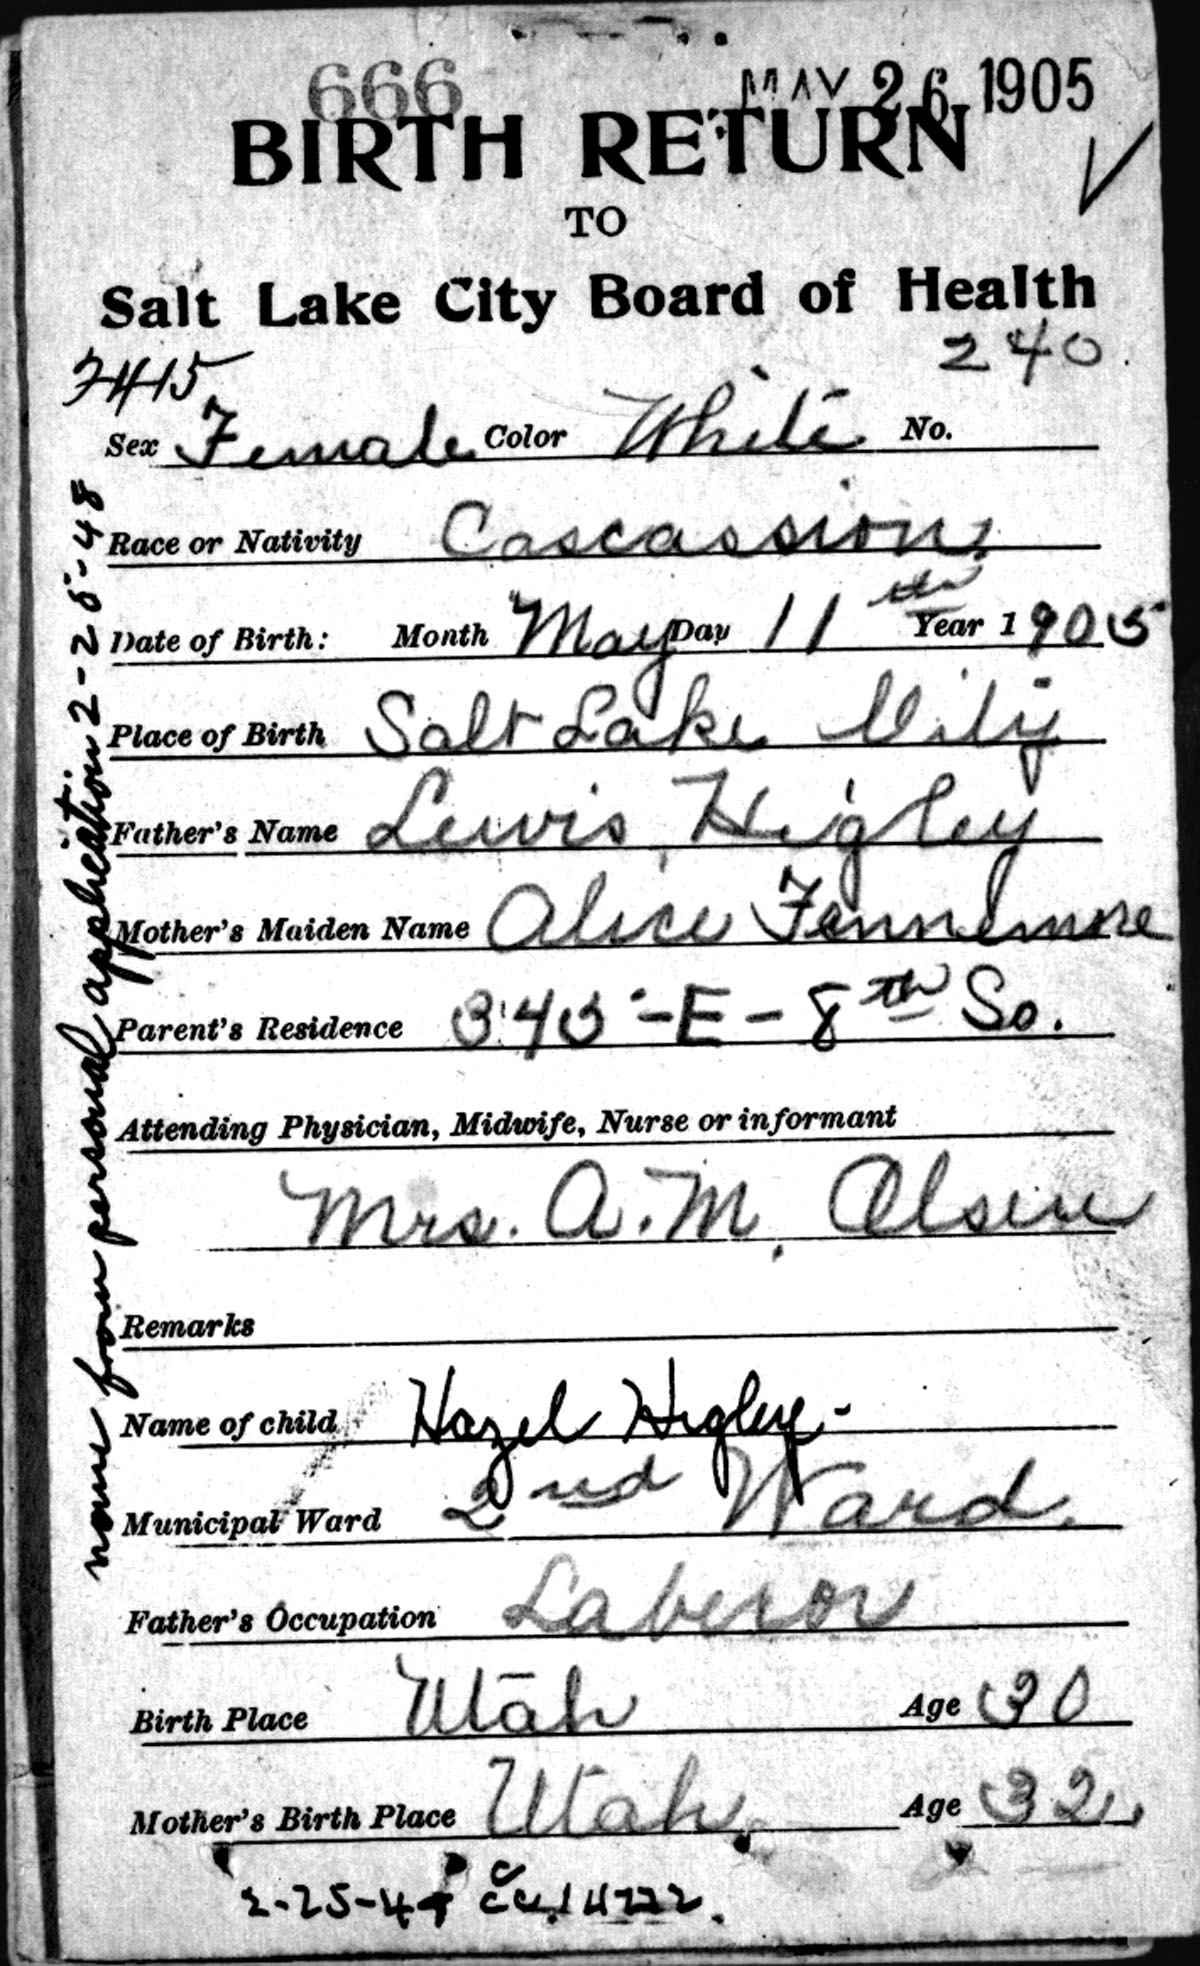 666 MAY 26 1905
BIRTH RETURN
TO
Salt Lake City Board of Health
240
7415
Sex Female Color White No.
Race or Nativity Coscassion.
Date of Birth: Month May Day 11th Year 1905
Place of Birth Salt Lake City
Father's Name Lewis Higley
Mother's Maiden Name Alice Fennemore
Parent's Residence 345-E-8th So.
Attending Physician, Midwife, Nurse or informant
Mrs. A.M. Olsen
Remarks
Name of child Hazel Higley-
Municipal Ward 2nd Ward.
Father's Occupation Laberor
Birth Place Utah Age 30
Mother's Birth Place Utah. Age 32
2-25-48 14222.
name from personal application 2-25-48